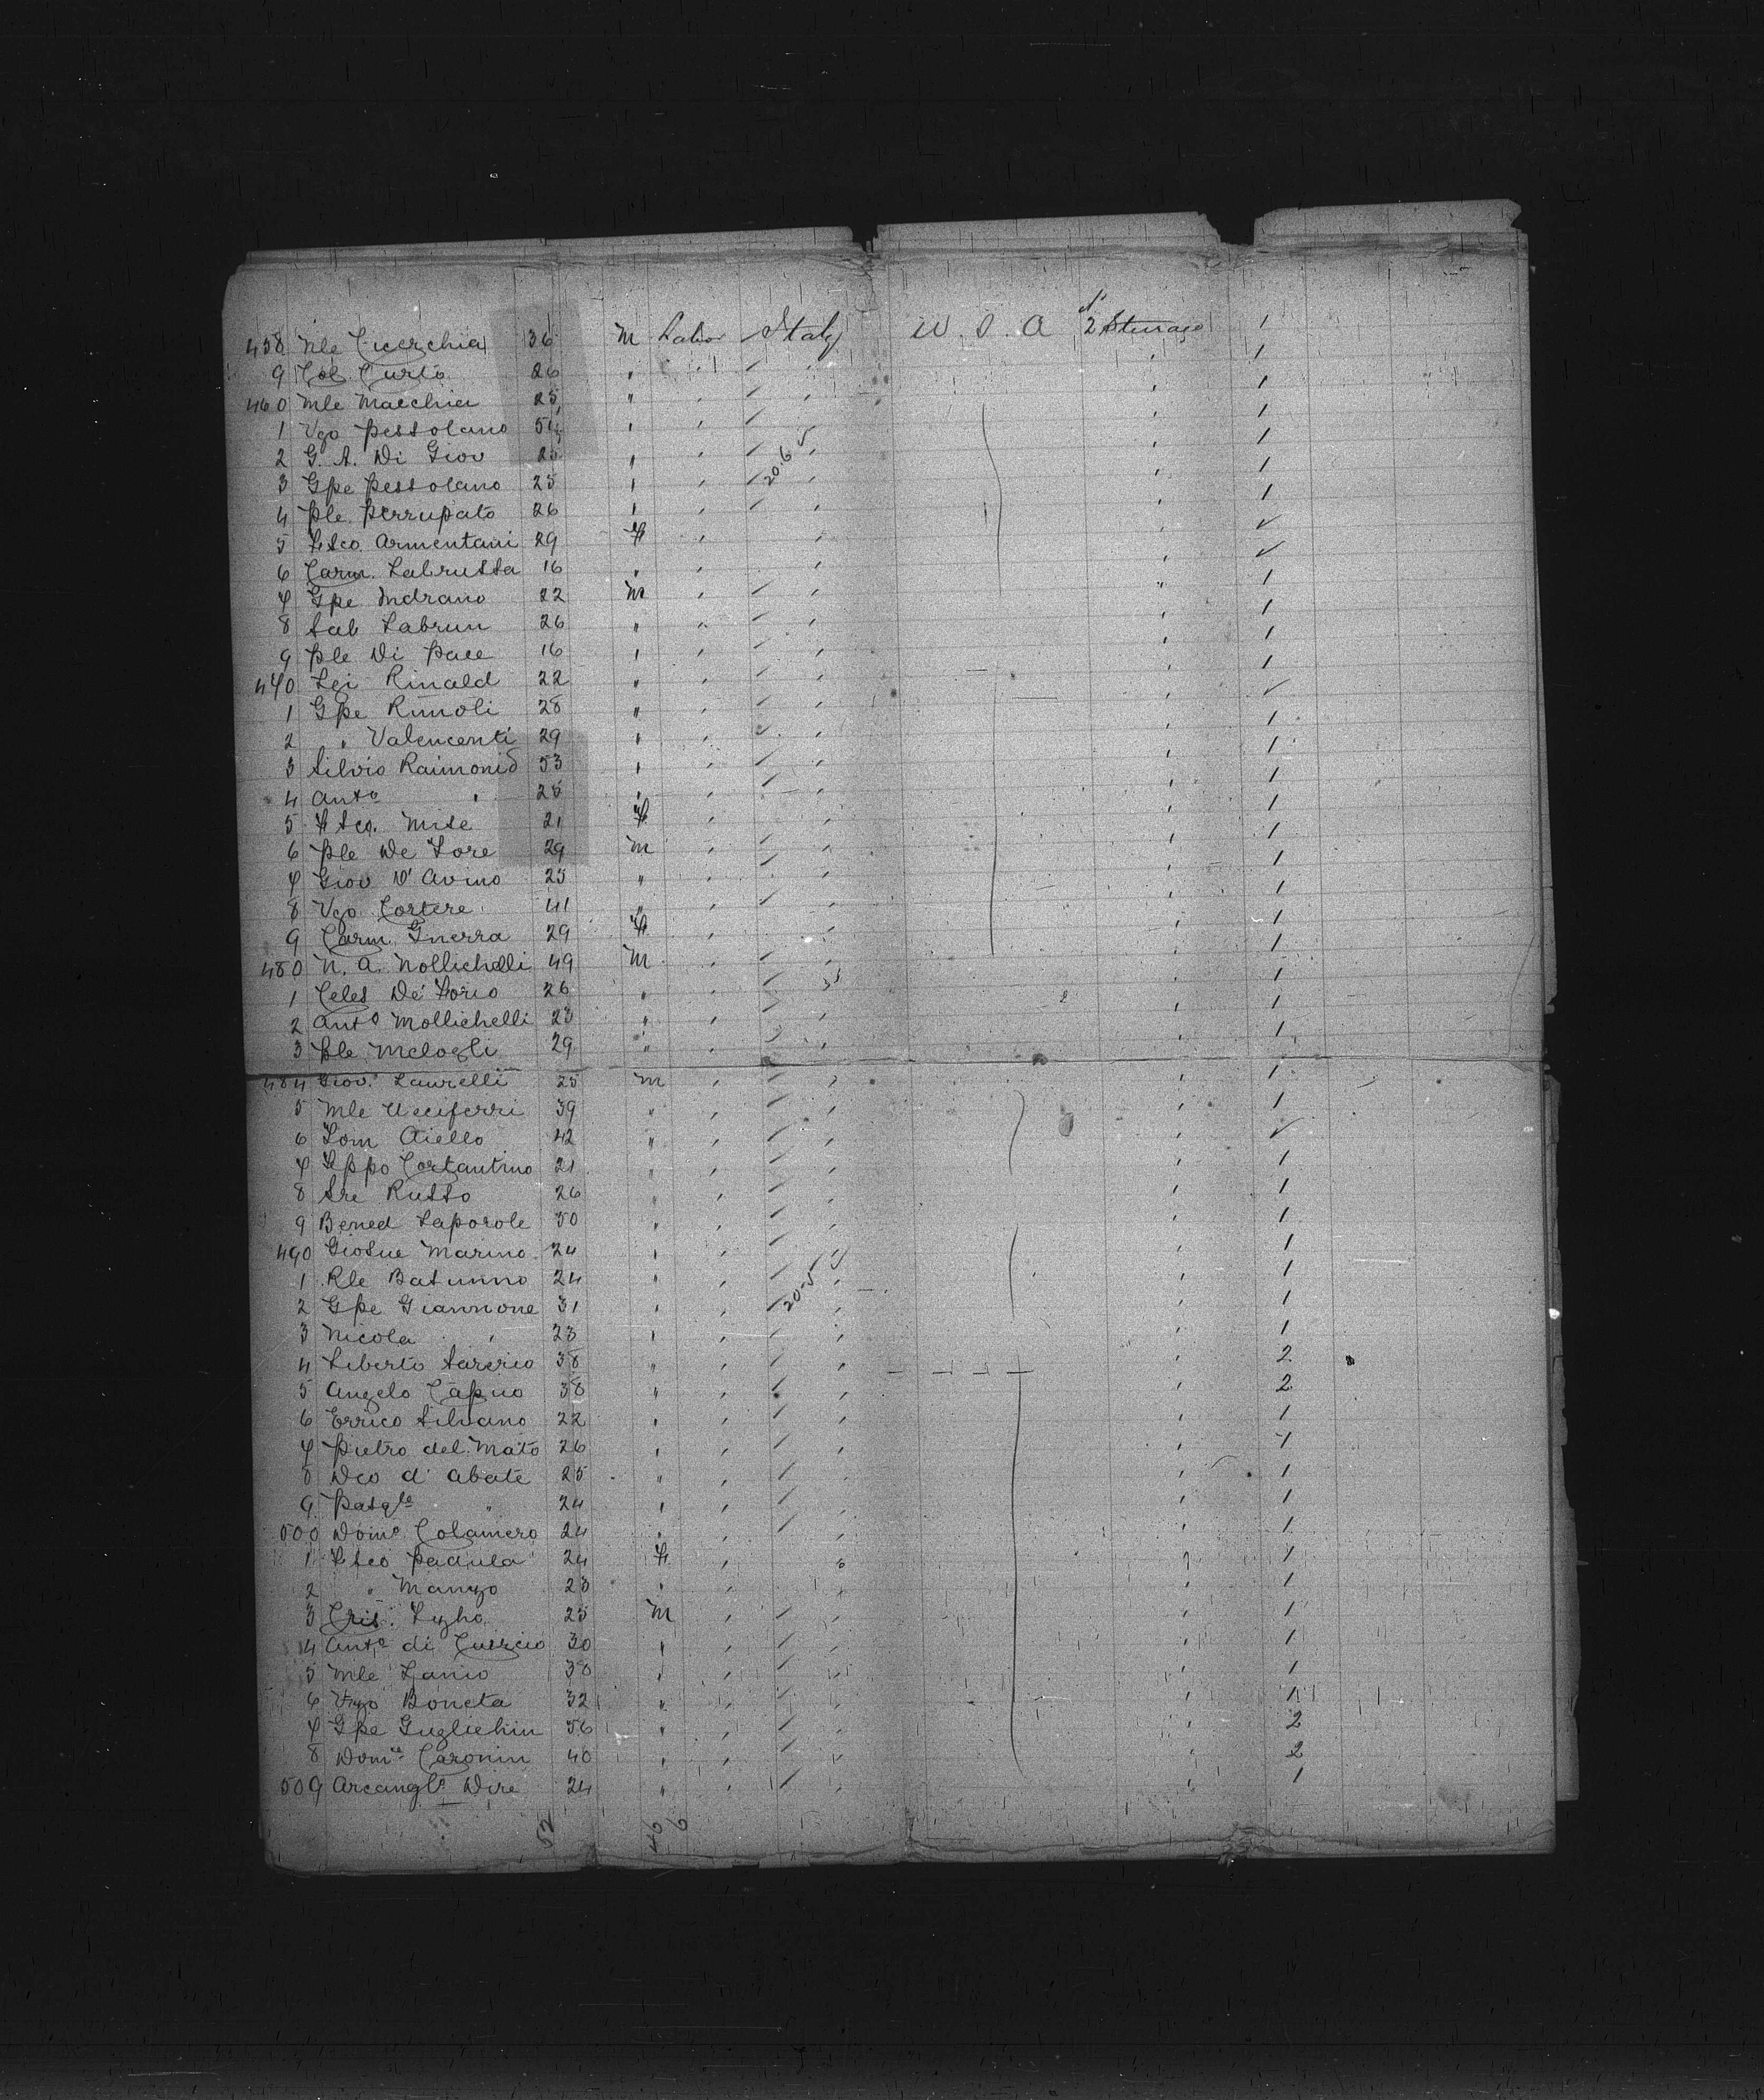 458 Mle Cicerchia 36 M Labor Italy U. S. A 2 Steerage 1
9 Col. Curto 26 " 1
460 Mle Macchia 25 " 1
1 Vgo Pessolano 54 1
2 G. A. Di Giov 25 " 1
3 Gpe Pessolano 25 20.6 1
4 Ple. Perrupato 26 1
5 Fsco. Armentani 29 F ✓
6 Carm. Labrussa 16 " ✓
7 Gpe Indrano 22 M 1
8 Sab Labrun 26 " 1
9 Ple Di Pace 16 1
470 Lei Rinald 22 " 1
1 Gpe Rinoli 28 " ✓
2 " Valencenti 29 " 1
3 Silvio Raimonid 53 1
4 Anto " 25 1
5 Fsco. Mise 21 F 1
6 Ple De Lore 29 M 1
7 Giov D'Avino 25 " 1
8 Vgo Cortere 41 " 1
9 Carm. Guerra 29 F 1
480 N. A. Mollichelli 49 M 1
1 Celes De Lorio 26 " 1
2 Anto Mollichelli 23 " 1
3 Ple Melogli 29 " 1
484 Giov. Laurelli 25 M 1
5 Mle Ucciferri 39 " 1
6 Lom Aiello 42 " ✓
7 Fppo Costantino 21 " 1
8 Sre Russo 26 " 1
9 Bened Laporole 50 " 1
490 Giosue Marino 24 1
1 Rle Batunno 24 " 20-5 1
2 Gpe Giannone 31 1
3 Nicola " 23 1
4 Liberto Sarerio 38 " 2
5 Angelo Capuo 38 " 2
6 Errico Silvano 22 1
7 Pietro del Mato 26 1
8 Dco d'Abate 25 " 1
9 Pasqle " 24 1
500 Domo Colamero 24 1
1 Fsco Padula 24 F 1
2 " Manzo 23 1
3 Cris. Lygho 25 M 1
4 Anto di Cusrcio 30 1
5 Mle Lanio 38 1
6 Vnzo Boneta 32 " 1
7 Gpe Guglielmin 56 " 2
8 Domco Caronin 40 2
509 Arcanglo Dire 24 " 1
52 46 6